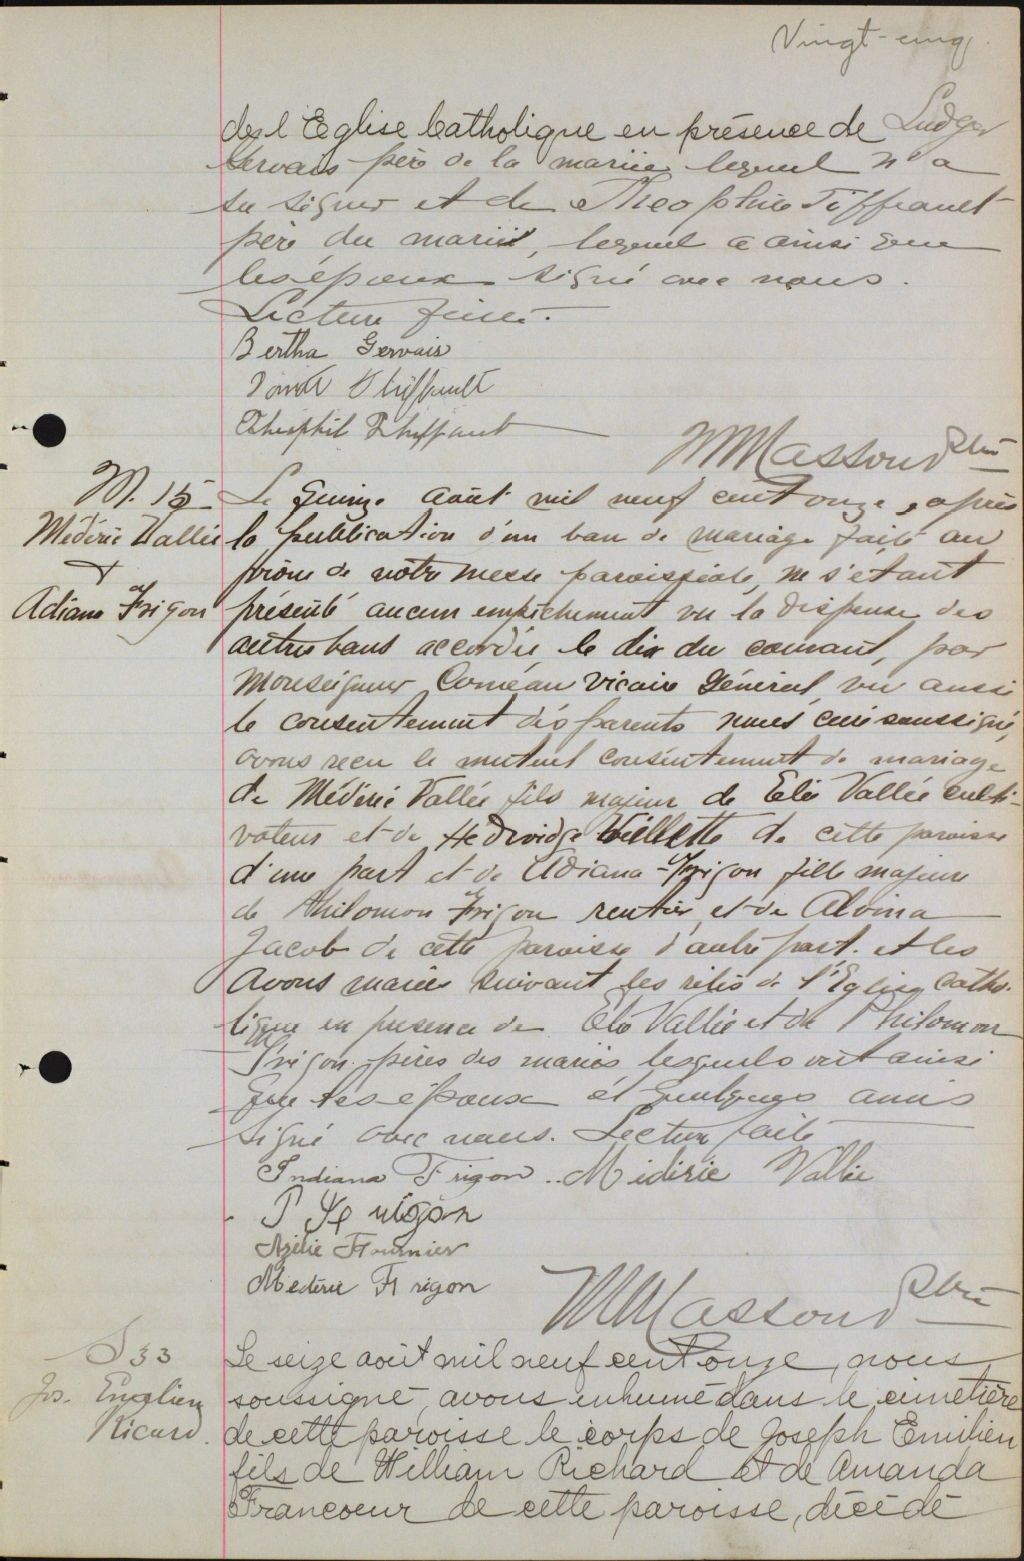 Vingt-cinq
des l'Eglise Catholique en présence de Ludger
Gervais père de la mariée lequel n'a
su signer et de Theophile Tiffeault
père du marié, lequel a ainsi que
les époux signé avec nous.
Lecture faite.
Bertha Gervais
Thiffeault
Théophil Thiffault
Massoud Ptre
M. 15
Médéric Vallée
+
Adiana Frigon
Le Quinze août mil neuf cent onze, après
la publication d'un ban de mariage faite au
prône de notre messe paroissiale, ne s'étant
présenté aucun empêchement vu la dispense des
autres bans accordée le dix du courant, par
Monseigneur Coméau Vicaire Général, vu aussi
le consentement des parents nous curé soussigné,
avons reçu le mutuel consentement de mariage
de Médéric Vallée fils majeur de Elie Vallée culti-
vateur et de Hedwidge Veillette de cette paroisse
d'une part et de Adiana Frigon fille majeure
de Philomon Frigon rentier et de Alvina
Jacob de cette paroisse d'autre part. et les
avons mariés suivant les rites de l'Eglise Catho-
lique en presence de Elie Vallée et de Philomon
Frigon pères des mariés lesquels ont ainsi
que les époux et quelques amis
signé avec nous. Lecture faite
Indiana Frigon .. Midirie Vallée
P Frigon
Azélie Fournier
Mederic Frigon
Massoud Ptre
S 33
Jos. Emilien
Ricard.
Le seize août mil neuf cent onze, nous
soussigné, avons inhumé dans le cimetière
de cette paroisse le corps de Joseph Emilien
fils de William Richard et de Amanda
Francoeur de cette paroisse, décédé